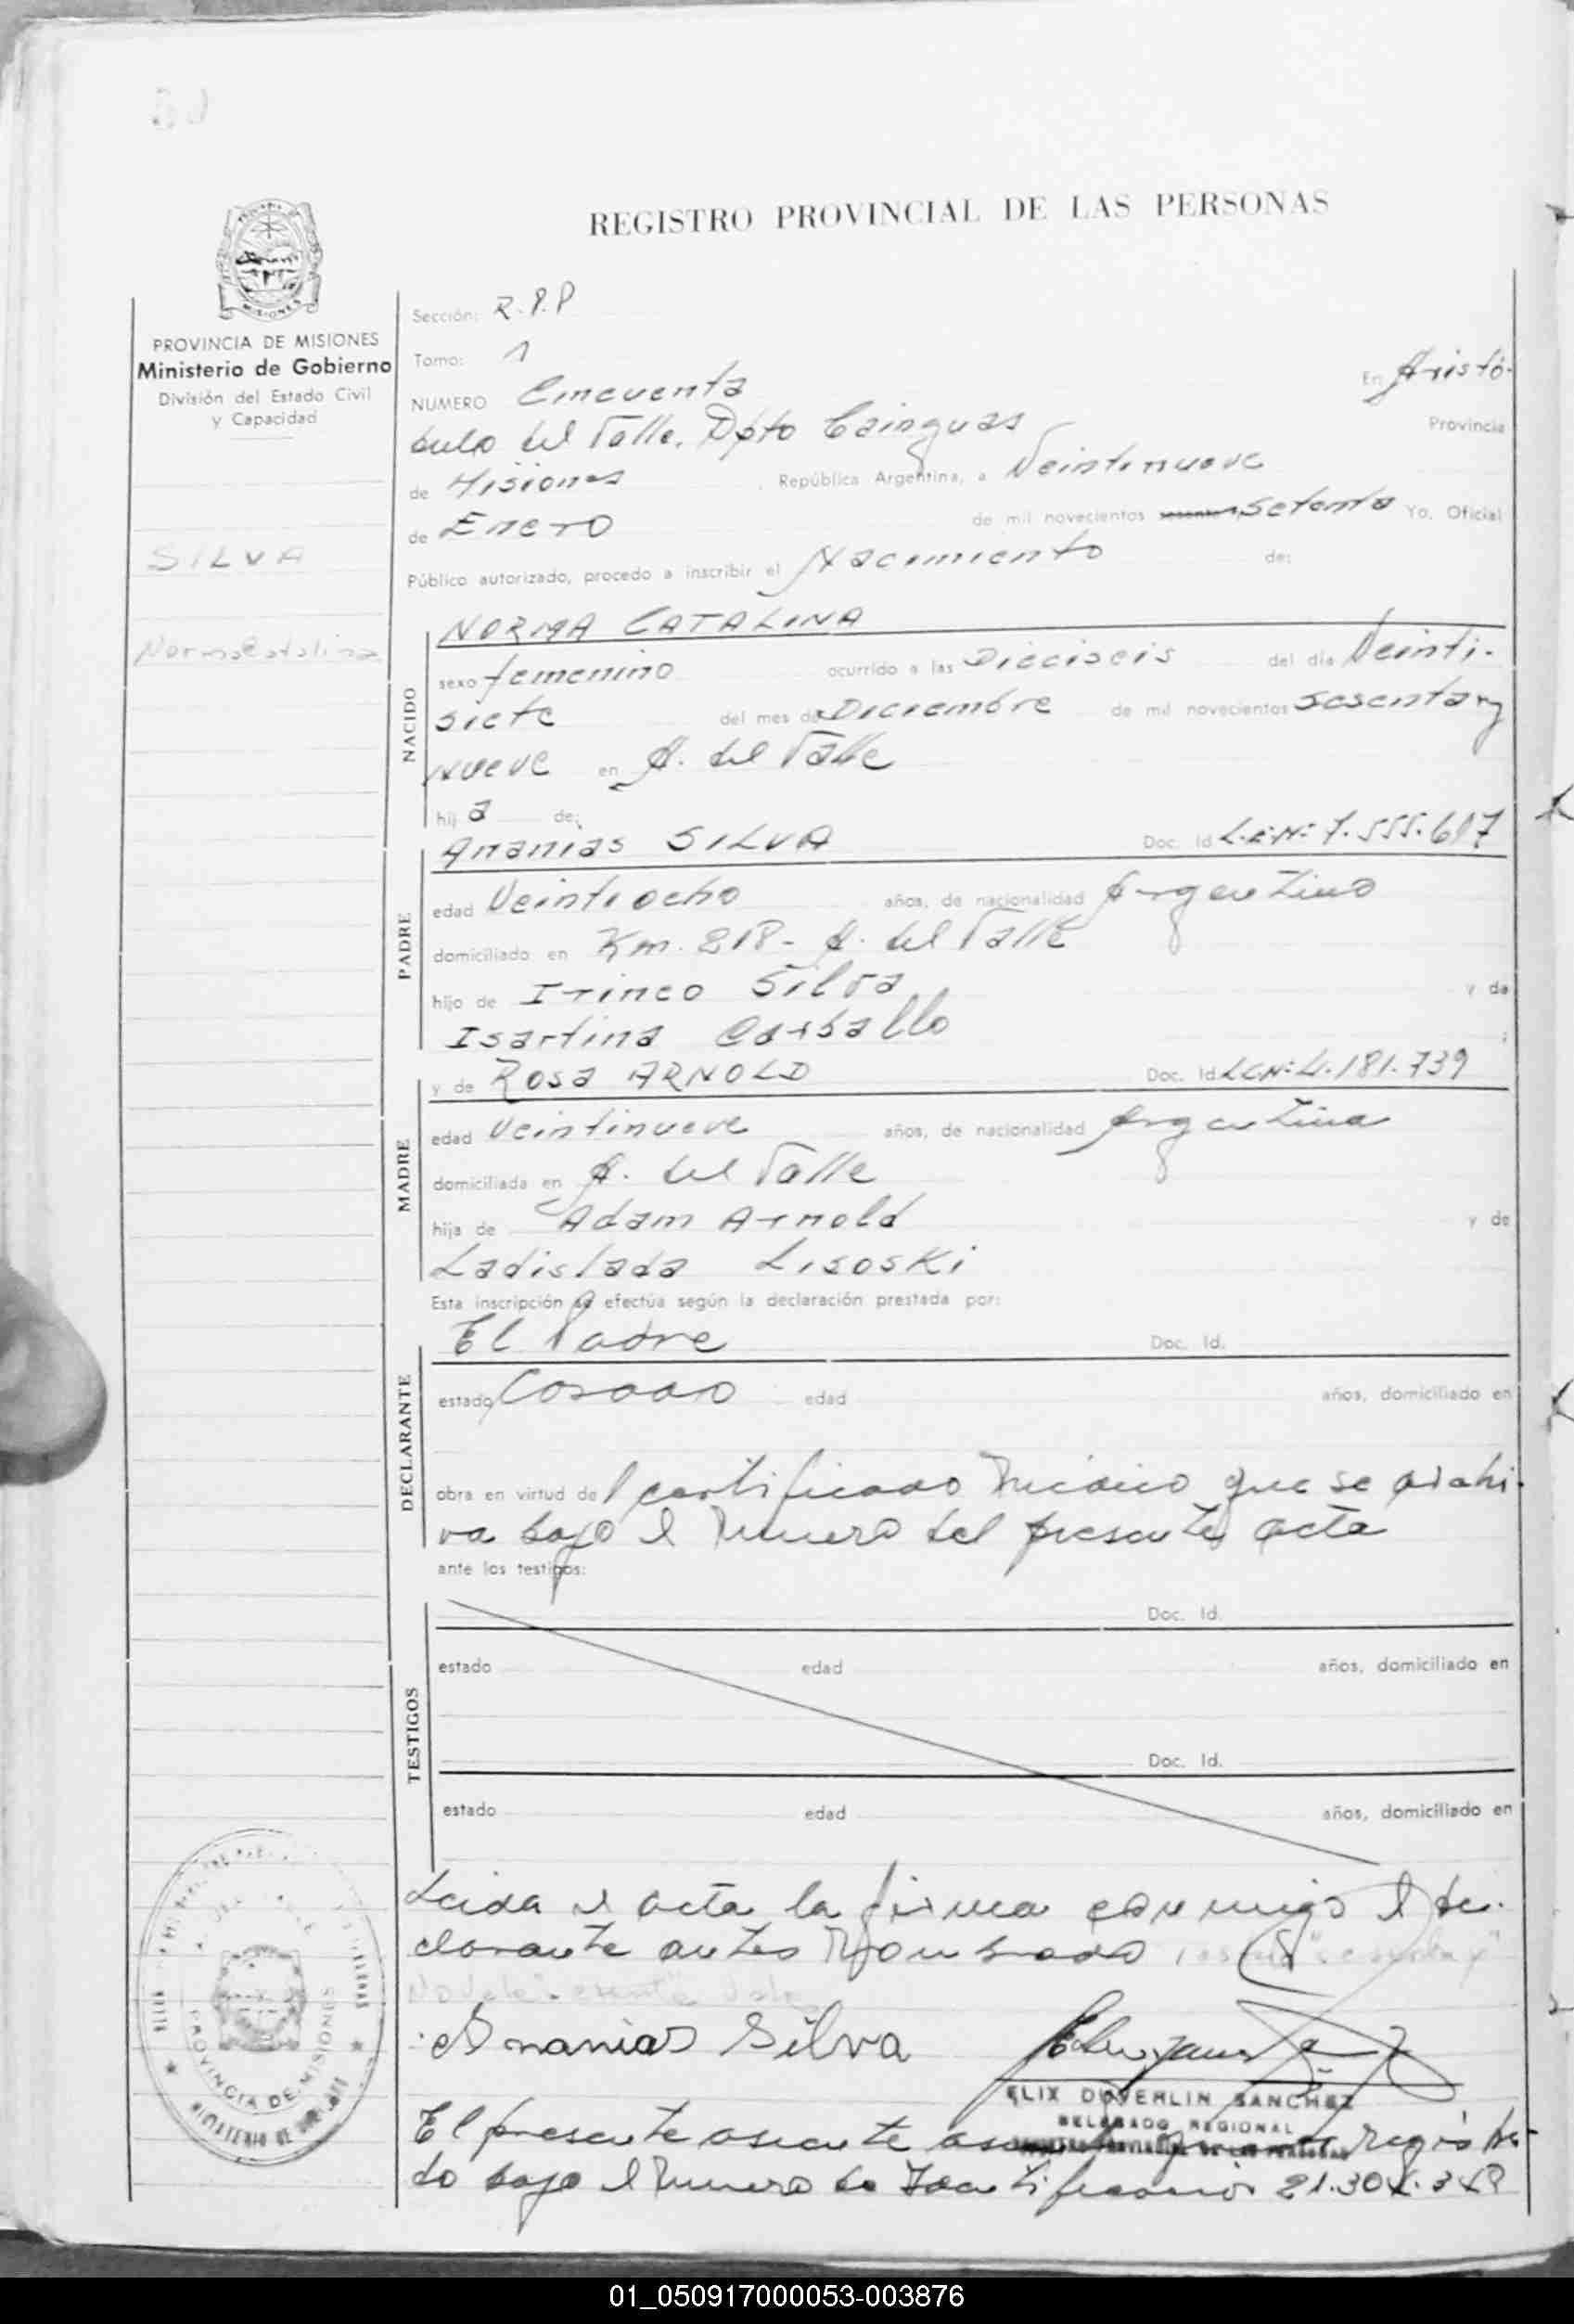 REGISTRO PROVINCIAL DE LAS PERSONAS
MISIONES
PROVINCIA DE MISIONES
Ministerio de Gobierno
División del Estado Civil
y Capacidad
SILVA
Norma Catalina
Sección: R.P.P
Tomo: 1
NUMERO Cincuenta En Aristó-
bulo del Valle, Dpto Cainguas Provincia
de Misiones , República Argentina, a Veintinueve
de Enero de mil novecientos setenta Yo, Oficial
Público autorizado, procedo a inscribir el Nacimiento de:
NACIDO
NORMA CATALINA
sexo femenino ocurrido a las Dieciseis del día Veinti-
siete del mes de Diciembre de mil novecientos sesenta y
nueve en A. del Valle
hij a de:
PADRE
Ananias SILVA Doc. Id L.E.Nº 7.555.617
edad Veintiocho años, de nacionalidad Argentino
domiciliado en Km. 218- A. del Valle
hijo de Irineo Silva y de
Isartina Carballo ;
MADRE
y de Rosa ARNOLD Doc. Id L.C.Nº 4.181.739
edad Veintinueve años, de nacionalidad Argentina
domiciliada en A. del Valle
hija de Adam Arnold y de
Ladislada Lisoski
Esta inscripción se efectúa según la declaración prestada por:
DECLARANTE
El Padre Doc. Id.
estado Casado edad años, domiciliado en
obra en virtud de l certificado médico que se archi-
va bajo el número del presente acta
ante los testigos:
TESTIGOS
Doc. Id.
estado edad años, domiciliado en
Doc. Id.
estado edad años, domiciliado en
Leida el acta la firma conmigo el de-
clarante antes nombrado
Ananias Silva
ELIX DUVERLIN SANCHEZ
DELEGADO REGIONAL
El presente asiente registra-
do bajo el número de Identificación
PROVINCIA DE MISIONES
MINISTERIO DE GOBIERNO
01_050917000053-003876